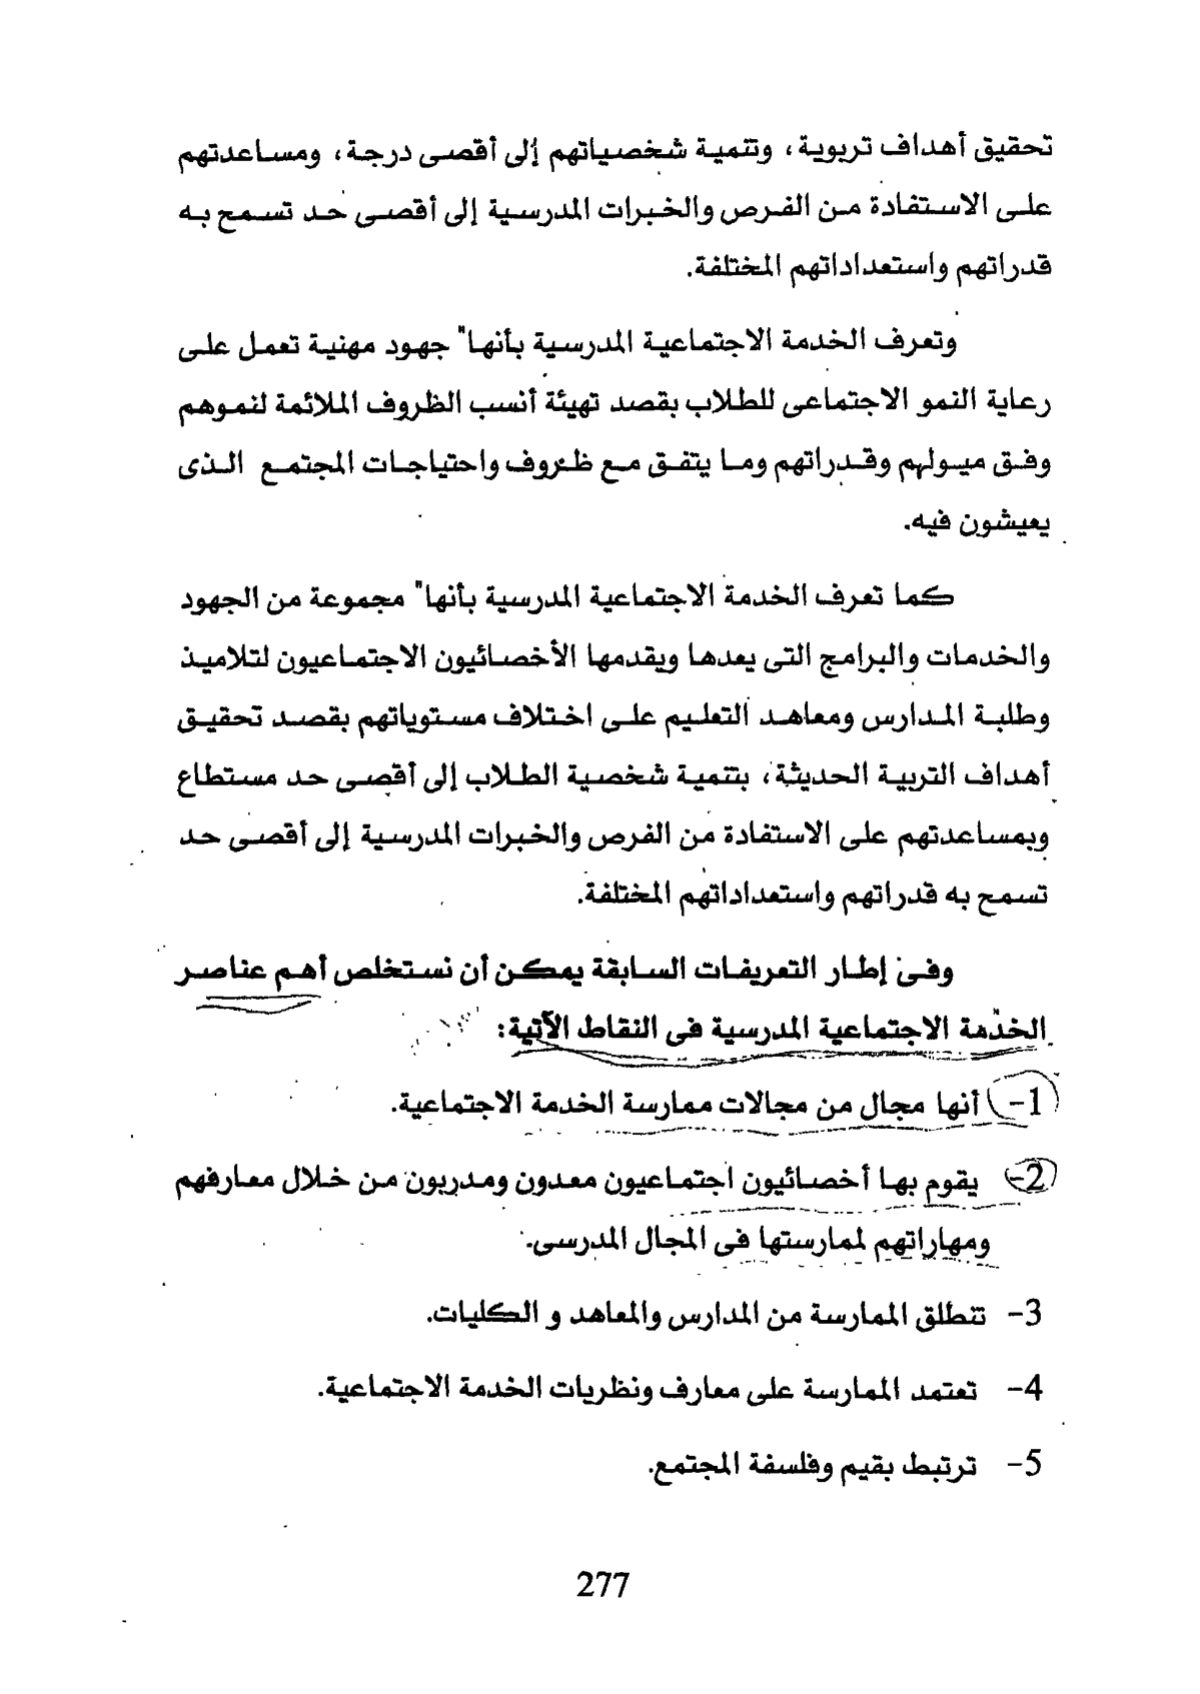 تحقيق أهداف تربوية، وتنمية شخصياتهم إلى أقصى درجة، ومساعدتهم
على الاستفادة من الفرص والخبرات المدرسية إلى أقصى حد تسمح به
قدراتهم واستعداداتهم المختلفة.
وتعرف الخدمة الاجتماعية المدرسية بأنها" جهود مهنية تعمل على
رعاية النمو الاجتماعى للطلاب بقصد تهيئة أنسب الظروف الملائمة لنموهم
وفق ميولهم وقدراتهم وما يتفق مع ظروف واحتياجات المجتمع الذى
يعيشون فيه.
كما تعرف الخدمة الاجتماعية المدرسية بأنها" مجموعة من الجهود
والخدمات والبرامج التى يعدها ويقدمها الأخصائيون الاجتماعيون لتلاميذ
وطلبة المدارس ومعاهد التعليم على اختلاف مستوياتهم بقصد تحقيق
أهداف التربية الحديثة، بتنمية شخصية الطلاب إلى أقصى حد مستطاع
وبمساعدتهم على الاستفادة من الفرص والخبرات المدرسية إلى أقصى حد
تسمح به قدراتهم واستعداداتهم المختلفة.
وفى إطار التعريفات السابقة يمكن أن نستخلص أهم عناصر
الخدمة الاجتماعية المدرسية فى النقاط الآتية:
1- أنها مجال من مجالات ممارسة الخدمة الاجتماعية.
2- يقوم بها أخصائيون اجتماعيون معدون ومدربون من خلال معارفهم
ومهاراتهم لممارستها فى المجال المدرسى.
3- تنطلق الممارسة من المدارس والمعاهد و الكليات.
4- تعتمد الممارسة على معارف ونظريات الخدمة الاجتماعية.
5- ترتبط بقيم وفلسفة المجتمع.
277